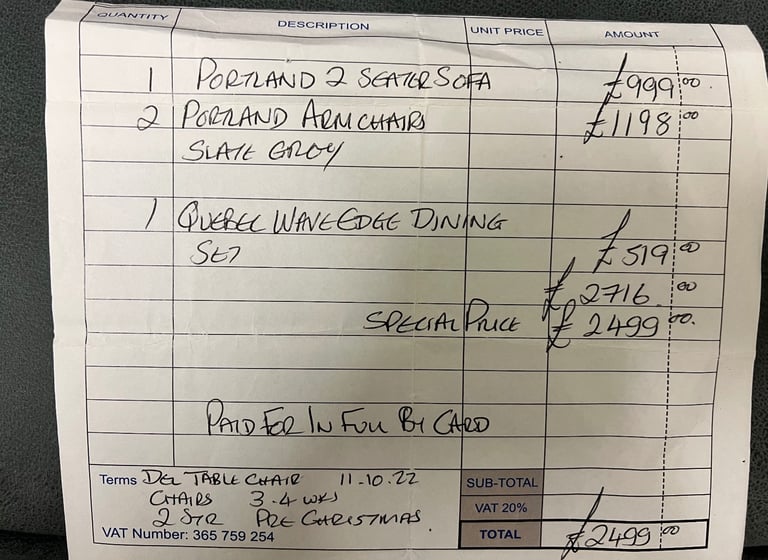 QUANTITY DESCRIPTION UNIT PRICE AMOUNT
1 PORTLAND 2 SEATER SOFA £999.00
2 PORTLAND ARMCHAIRS £1198.00
SLATE GREY
1 QUEBEC WAVE EDGE DINING
SET £519.00
£2716.00
SPECIAL PRICE £2499.00.
PAID FOR IN FULL BY CARD
Terms DEL TABLE CHAIR 11-10.22 SUB-TOTAL
CHAIRS 3-4 WKS VAT 20%
2 STR PRE CHRISTMAS.
VAT Number: 365 759 254 TOTAL £2499.00